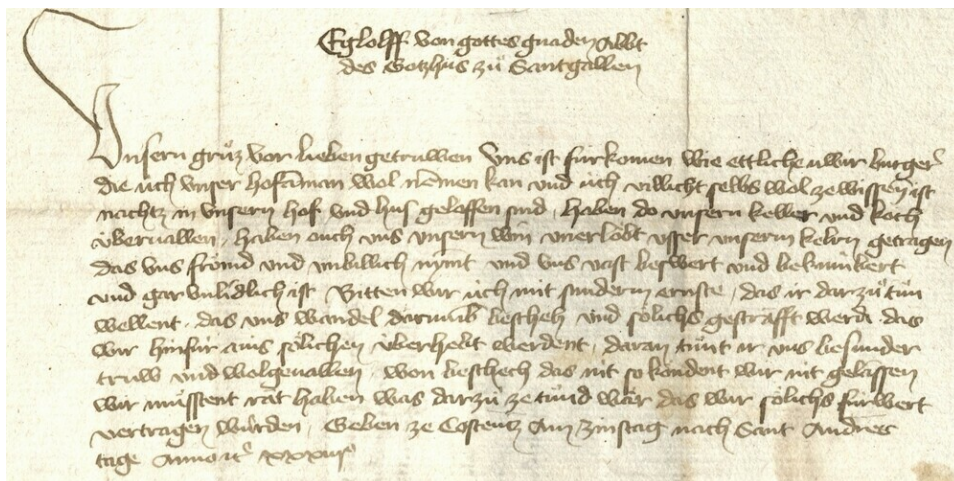 Eglolff von gottes gnaden Abbt
des Gotzhus zů Sant gallen
Unsern grůz vor lieben getruwen Uns ist fürkomen wie ettliche uwir burger
die üch unser hofaman wol nemen kan und üch villicht selbs wol ze wissen ist
nachtz in unsern hof und hus geloffen sind, haben do unsern keller und koch
überuallen, haben ouch uns unsern win unerlobt usser unserm kelrn getragen
das uns frömd und unbillich nymt und uns vast beswert und bekümbert
und gar unlidlich ist Bitten wir üch mit sunderm ernste, das ir darzů tün
wellent, das uns wandel darumb bescheh und sölichs gestrafft werd das
wir hinfür ains sölichen überhebt werdent, daran tůnt ir uns besunder
truw und wolgeuallen, won beschech das nit so kondent wir nit gelassen
wir müsstent rat haben was darzů ze tůnd wär das wir sölichs fürwert
vertragen wurden, Geben ze Costentz Am zinstag nach Sant Andres
tage Anno